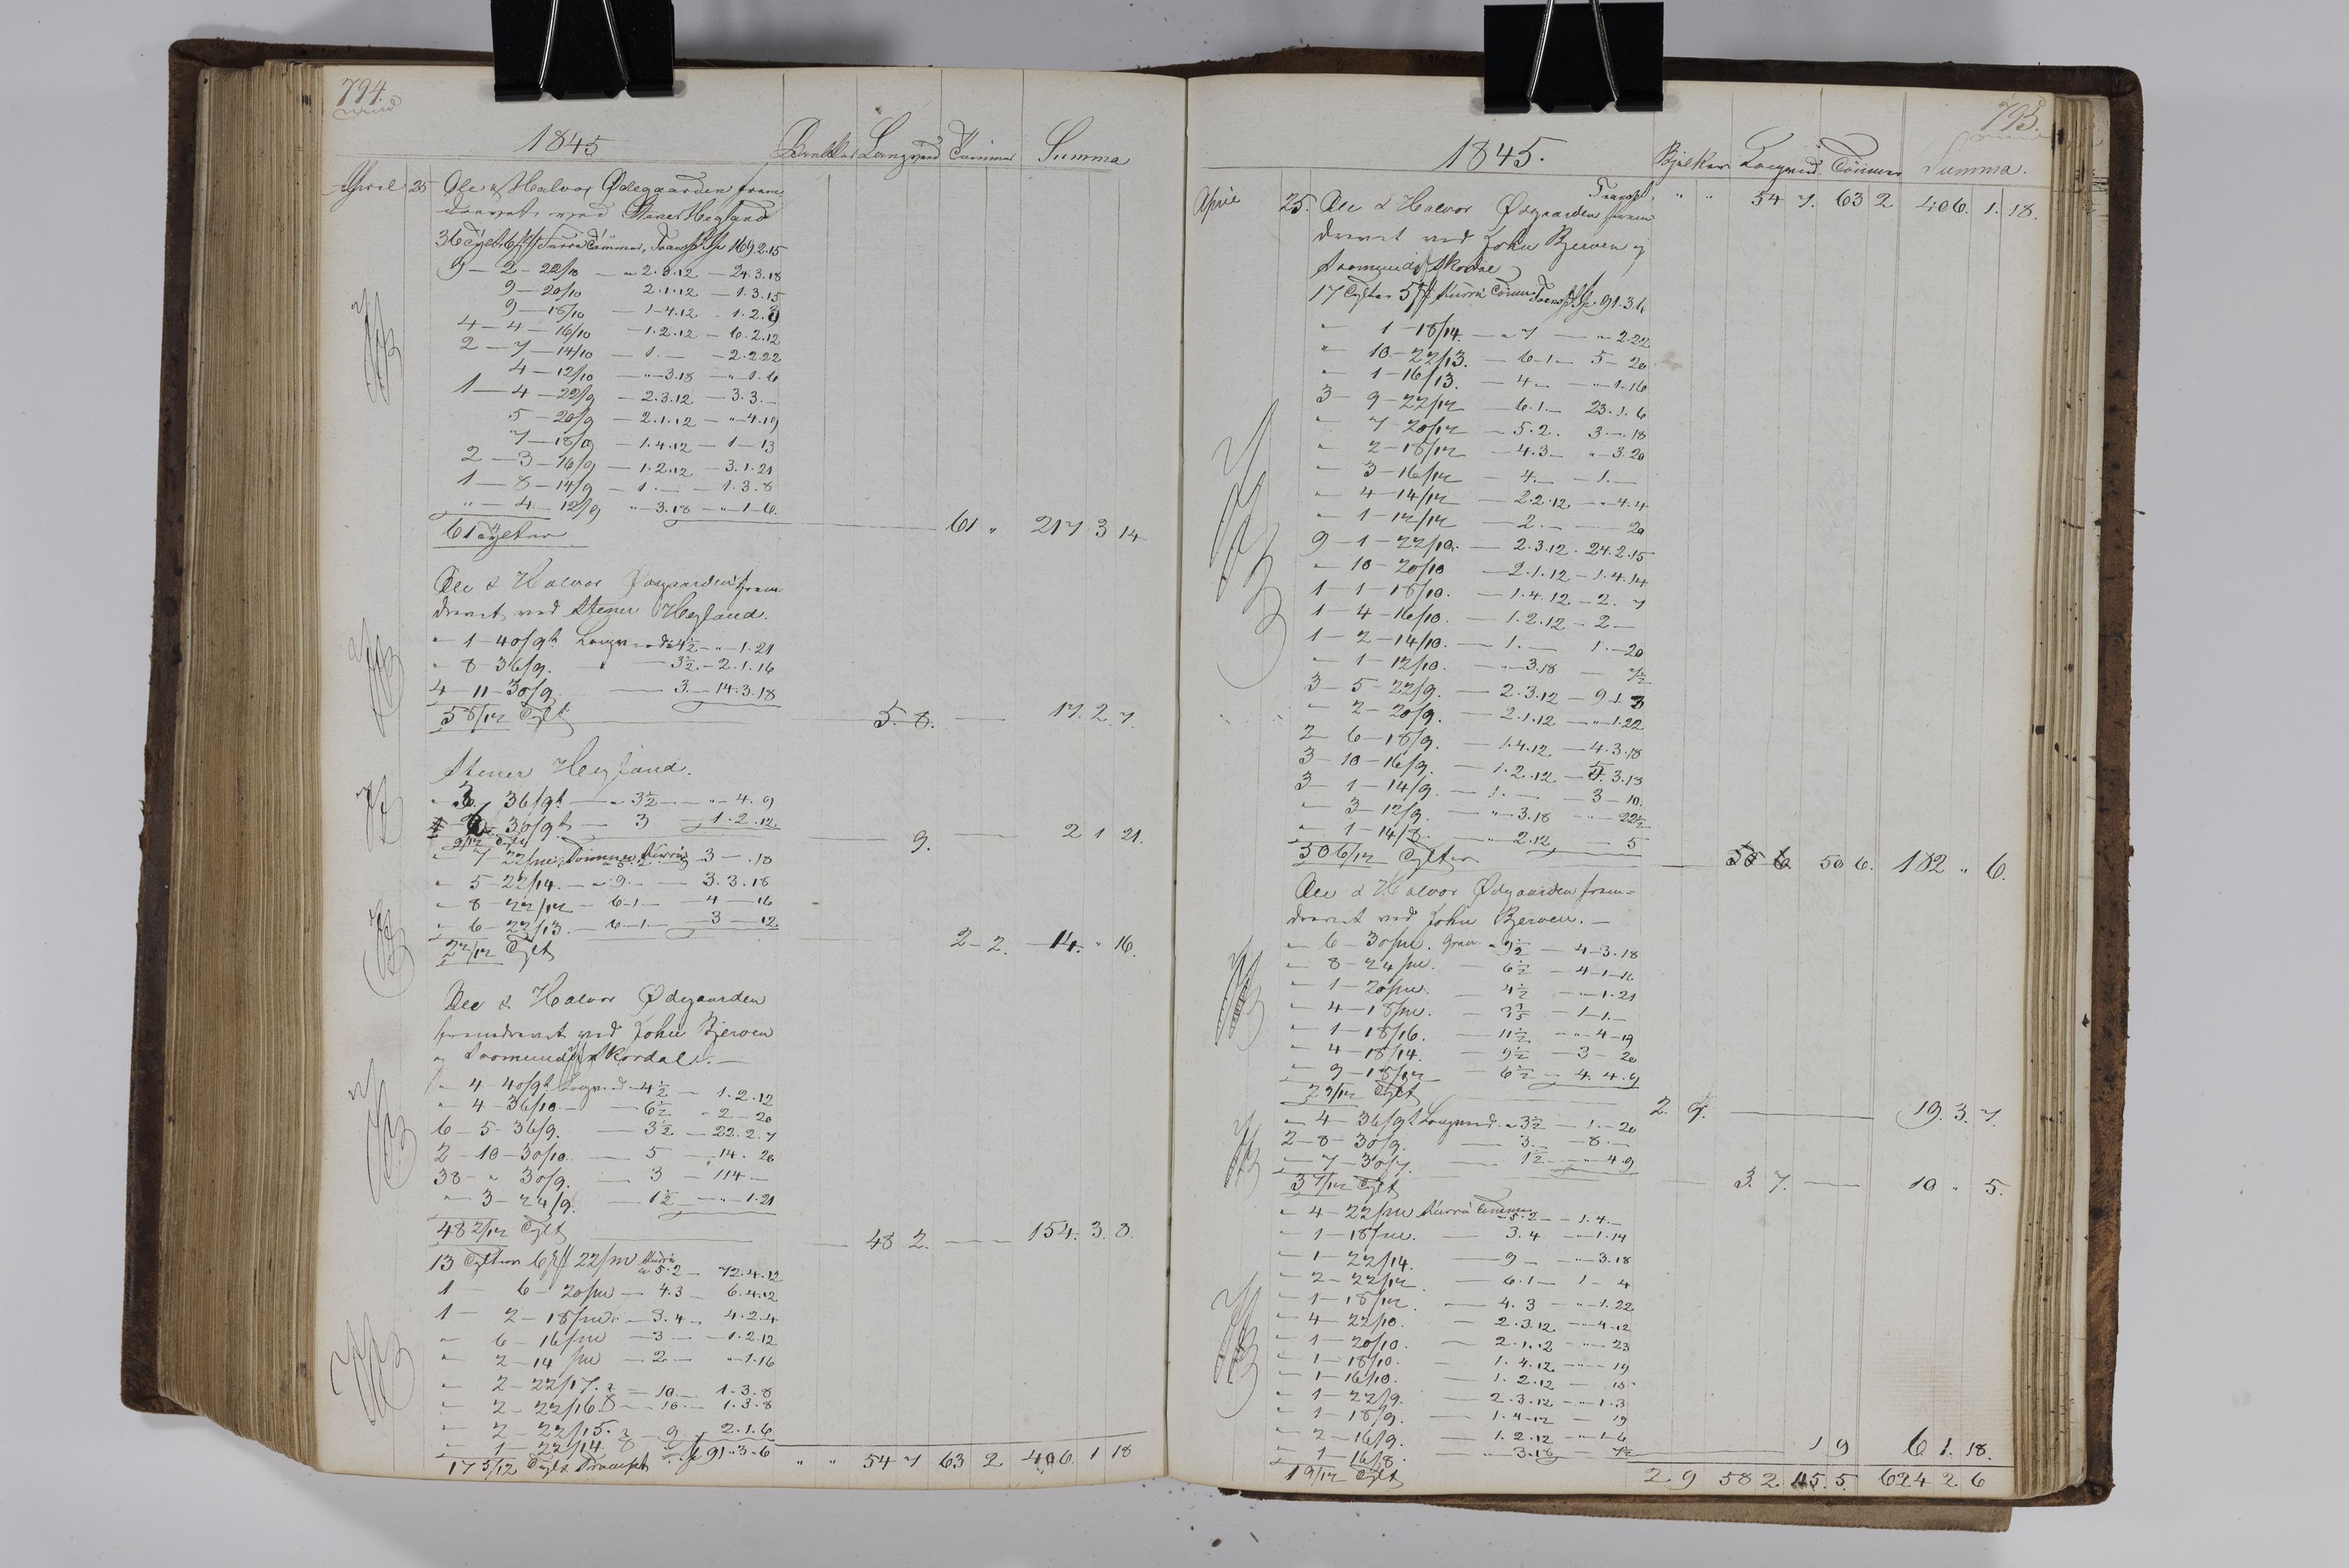 794.
1845 Langved Tømmer Summa
April 25 Ole & Halvor Ødegaarden frem-
drevet ved Stener Hegland
36 Tylt 6 st Furru Tømmer, Transpt Sp 169.2.15
9 — 2 — 22/10 — " 2.3.12 — 24.3.18
9 — 20/10 2.1.12 — 1.3.15
9 — 18/10 — 1.4.12 . 1.2.9
4 — 4 — 16/10 — 1.2.12 — 6.2.12
2 — 7 — 14/10 — 1. — — 2.2.22
4 — 12/10 — " — 3.18 — " 1.6
1 — 4 — 22/9 — 2.3.12 — 3.3. —
5 — 20/9 — 2.1.12 — " 4.19
7 — 18/9 — 1.4.12 — 1 — 13
2 — 3 — 16/9 — 1.2.12 — 3.1.21
1 — 8 — 14/9 — 1. — — 1.3.8
" — 4 — 12/9 " — 3.18 — " — 1 — 6.
61 Tylter 61 " 217 3 14
Ole & Halvor Ødegaarden frem-
drevet ved Stener Hegland.
" 1 — 40/9t Langved a 4½ — " — 1.21
" 8 — 36/9. — 3½ — 2.1.16
4 — 11 — 30/9 — 3. — 14.3.18
5 8/12 Tylt 5. 8. — 17. 2. 7.
Stener Hegland.
" 3 36/9t — " 3½ — " — 4.9
" 6 30/9t — 3 — 1.2.12
9/12 Tylt 9. — 2 1 21.
" 7 — 22/m Tømmer Furru a 5.2 3 — .18
" 5 — 22/14. — " 9. — — 3.3.18
" 8 — 22/12 — 6.1. — — 4 — 16
" 6 — 22/13. — 6.1. — — 3 — 12
2 2/12 Tylt 2 — 2. — 14. " 16.
Ole & Halvor Ødegaarden
fremdrevet ved John Bjerven
og Skordal. —
" 4 — 40/9t Langved — 4½ — 1.2.12
" 4 — 36/10 — — 6½ — 2 — 20
6 — 5 — 36/9. — 3½ — 22.2.7
2 — 10 — 30/10. — 5 — 14. 20
38 — " 30/9. — 3 — 114 —
" — 3 — 24/9. — 1½ — " — 1.21
48 2/12 Tylt — 48 2. — 154. 3. 8.
13 Tylter 6 st 22/m Furru a 5.2 — 72.4.12
1 — 6 — 20/m — 4.3 — 6.4.12
1 — 2 — 18/m — 3.4 — 4.2.4
" 6 — 16/m — 3 — — 1.2.12
" 2 — 14/m — 2 — " 1.16
" 2 — 22/17. — 10 — 1.3.8
" 2 — 22/16 — 10 — 1.3.8
" 2 — 22/15. — 9 — 2.1.6
" 1 — 22/14.
17 5/12 Tylt Transpt Sp 91 " 3 " 6 " " 54 7 63 2 406 1 18
795.
1845. Bjelker Langved. Tømmer Summa.
Transpt. " " 54 7. 63 2 406. 1. 18.
April 25. Ole & Halvor Ødgaarden frem-
drevet ved John Bjerven og
Skordal
17 Tylter 5 st Furru Tømmer Transpt Sp 91.3.6
" 1 — 18/14. — " 7 — " 2.22
" 10 — 22/13. — 6.1 — 5 — 20
" 1 — 16/13. — 4 — — " 1.16
3 — 9 — 22/12 — 6.1. — 23.1.6
" 7 — 20/12 — 5.2. 3 — . 18
" 2 — 18/12 — 4.3 — " — 3.20
" 3 — 16/12 — 4. — — 1. —
" 4 — 14/12 — 2.2.12 — " 4.4
" 1 — 12/12 — 2. — — 20
9 — 1 — 22/10. — 2.3.12 . 24.2.15
" 10 — 20/10 — 2.1.12 — 1.4.14
1 — 1 — 18/10. — 1.4.12 — 2. 7
1 — 4 — 16/10. — 1.2.12 — 2 —
1 — 2 — 14/10. — 1. — 1. — 20
" 1 — 12/10. — " — 3.18 — 7½
3 — 5 — 22/9. — 2.3.12 — 9 1 3
" 2 — 20/9. — 2.1.12 — " — 1.22
2 — 6 — 18/9. — 1.4.12 — 4.3.18
3 — 10 — 16/9. — 1.2.12 — 5. 3.18
3 — 1 — 14/9. — 1. — — 3 — 10.
" 3 — 12/9. — " — 3.18 — " — 22½
" 1 — 14/8. — 2.12 — 5
50 6/12 Tylter — 50 6. 182 " 6.
Ole & Halvor Ødgaarden frem-
drevet ved John Bjerven. —
" 6 — 30/m. Gran a 9½ — 4 — 3.18
" 8 — 24/m. — 6½ — 4 — 1 — 16
" 1 — 20/m. — 4½ — " — 1.21
" 4 — 18/m. — 1 — 1. —
" 1 — 18/16. — 11½ — " 4 — 19
" 4 — 18/14. — 9½ — 3 — 20
" 9 — 18/12 — 6½ — 4. 4.9
2 9/12 Tylt 2. 9. — 19. 3. 7.
" 4 — 36/9t Langved. a 3½ — 1. — 20
2 — 8 — 30/9. — 3. — 8. —
" 7 — 30/7. — 1½ — " — 4.9
3 7/12 Tylt — 3. 7. — 10 " 5.
" 4 — 22/m Furru Tømmer a 5.2 — 1.4. —
" 1 — 18/m. — 3.4 — " — 1.14
" 1 — 22/14. — 9 — — " — 3.18
" 2 — 22/12. — 6.1 — 1 — 4
" 1 — 18/12. — 4.3 — " — 1.22
" 4 — 22/10. — 2.3.12 — " 4.12
" 1 — 20/10. — 2.1.12 — " — 23
" 1 — 18/10. — 1.4.12 — " — 19
" 1 — 16/10. — 1.2.12 — 15
" 1 — 22/9. — 2.3.12 — " — 1.3
" 1 — 18/9. — 1.4.12 — 19
" 2 — 16/9. — 1.2.12 — " 1 — 6
" 1 — 16/8. — " 3.18 — 7½
1 9/12 Tylt — 1 9 6 1. 18.
2 9 58 2 115. 5. 624 2 6